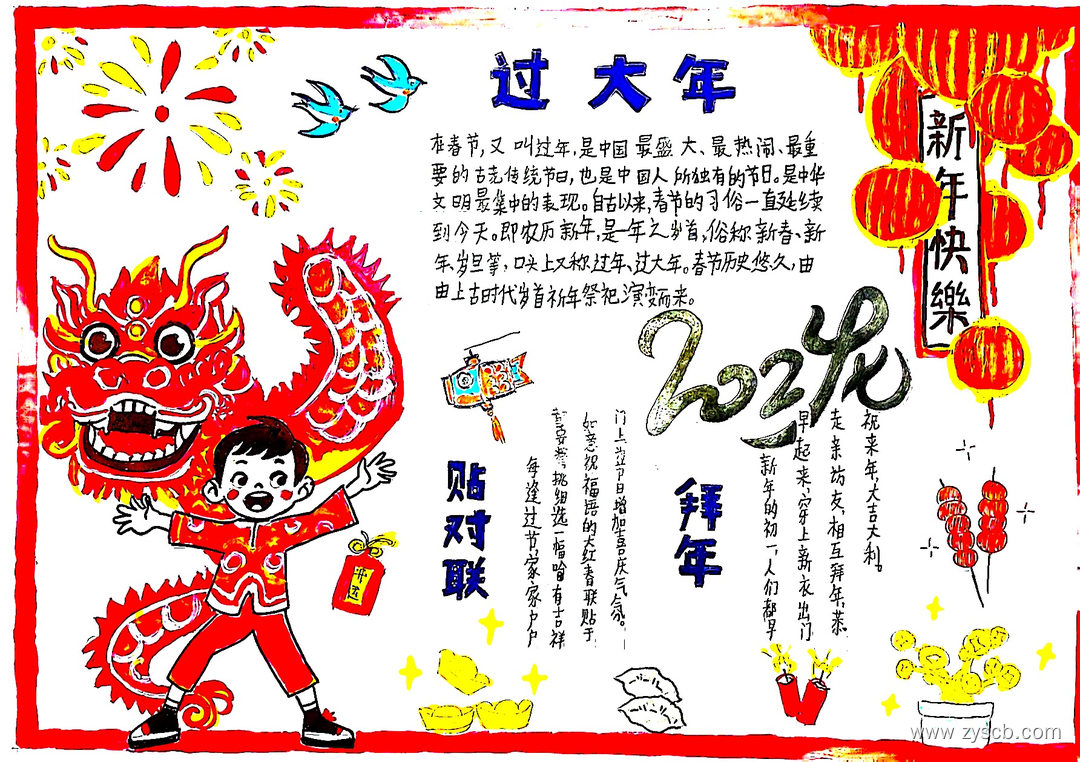 过大年
在春节,又叫过年,是中国最盛大、最热闹、最重
要的古老传统节日,也是中国人所独有的节日。是中华
文明最集中的表现。自古以来,春节的习俗一直延续
到今天。即农历新年,是一年之岁首,俗称新春、新
年、岁旦等,口头上又称过年、过大年。春节历史悠久,由
由上古时代岁首祈年祭祀演变而来。
新年快樂
2024龙
贴对联
每逢过节家家户户
挑组选一幅
有吉祥
如意祝福语的大红春联贴于
门上
节日增加喜庆气氛。
拜年
新年的初一,人们都早
早起来,穿上新衣出门
走亲访友,相互拜年,恭
祝来年大吉大利。
www.zyscb.com